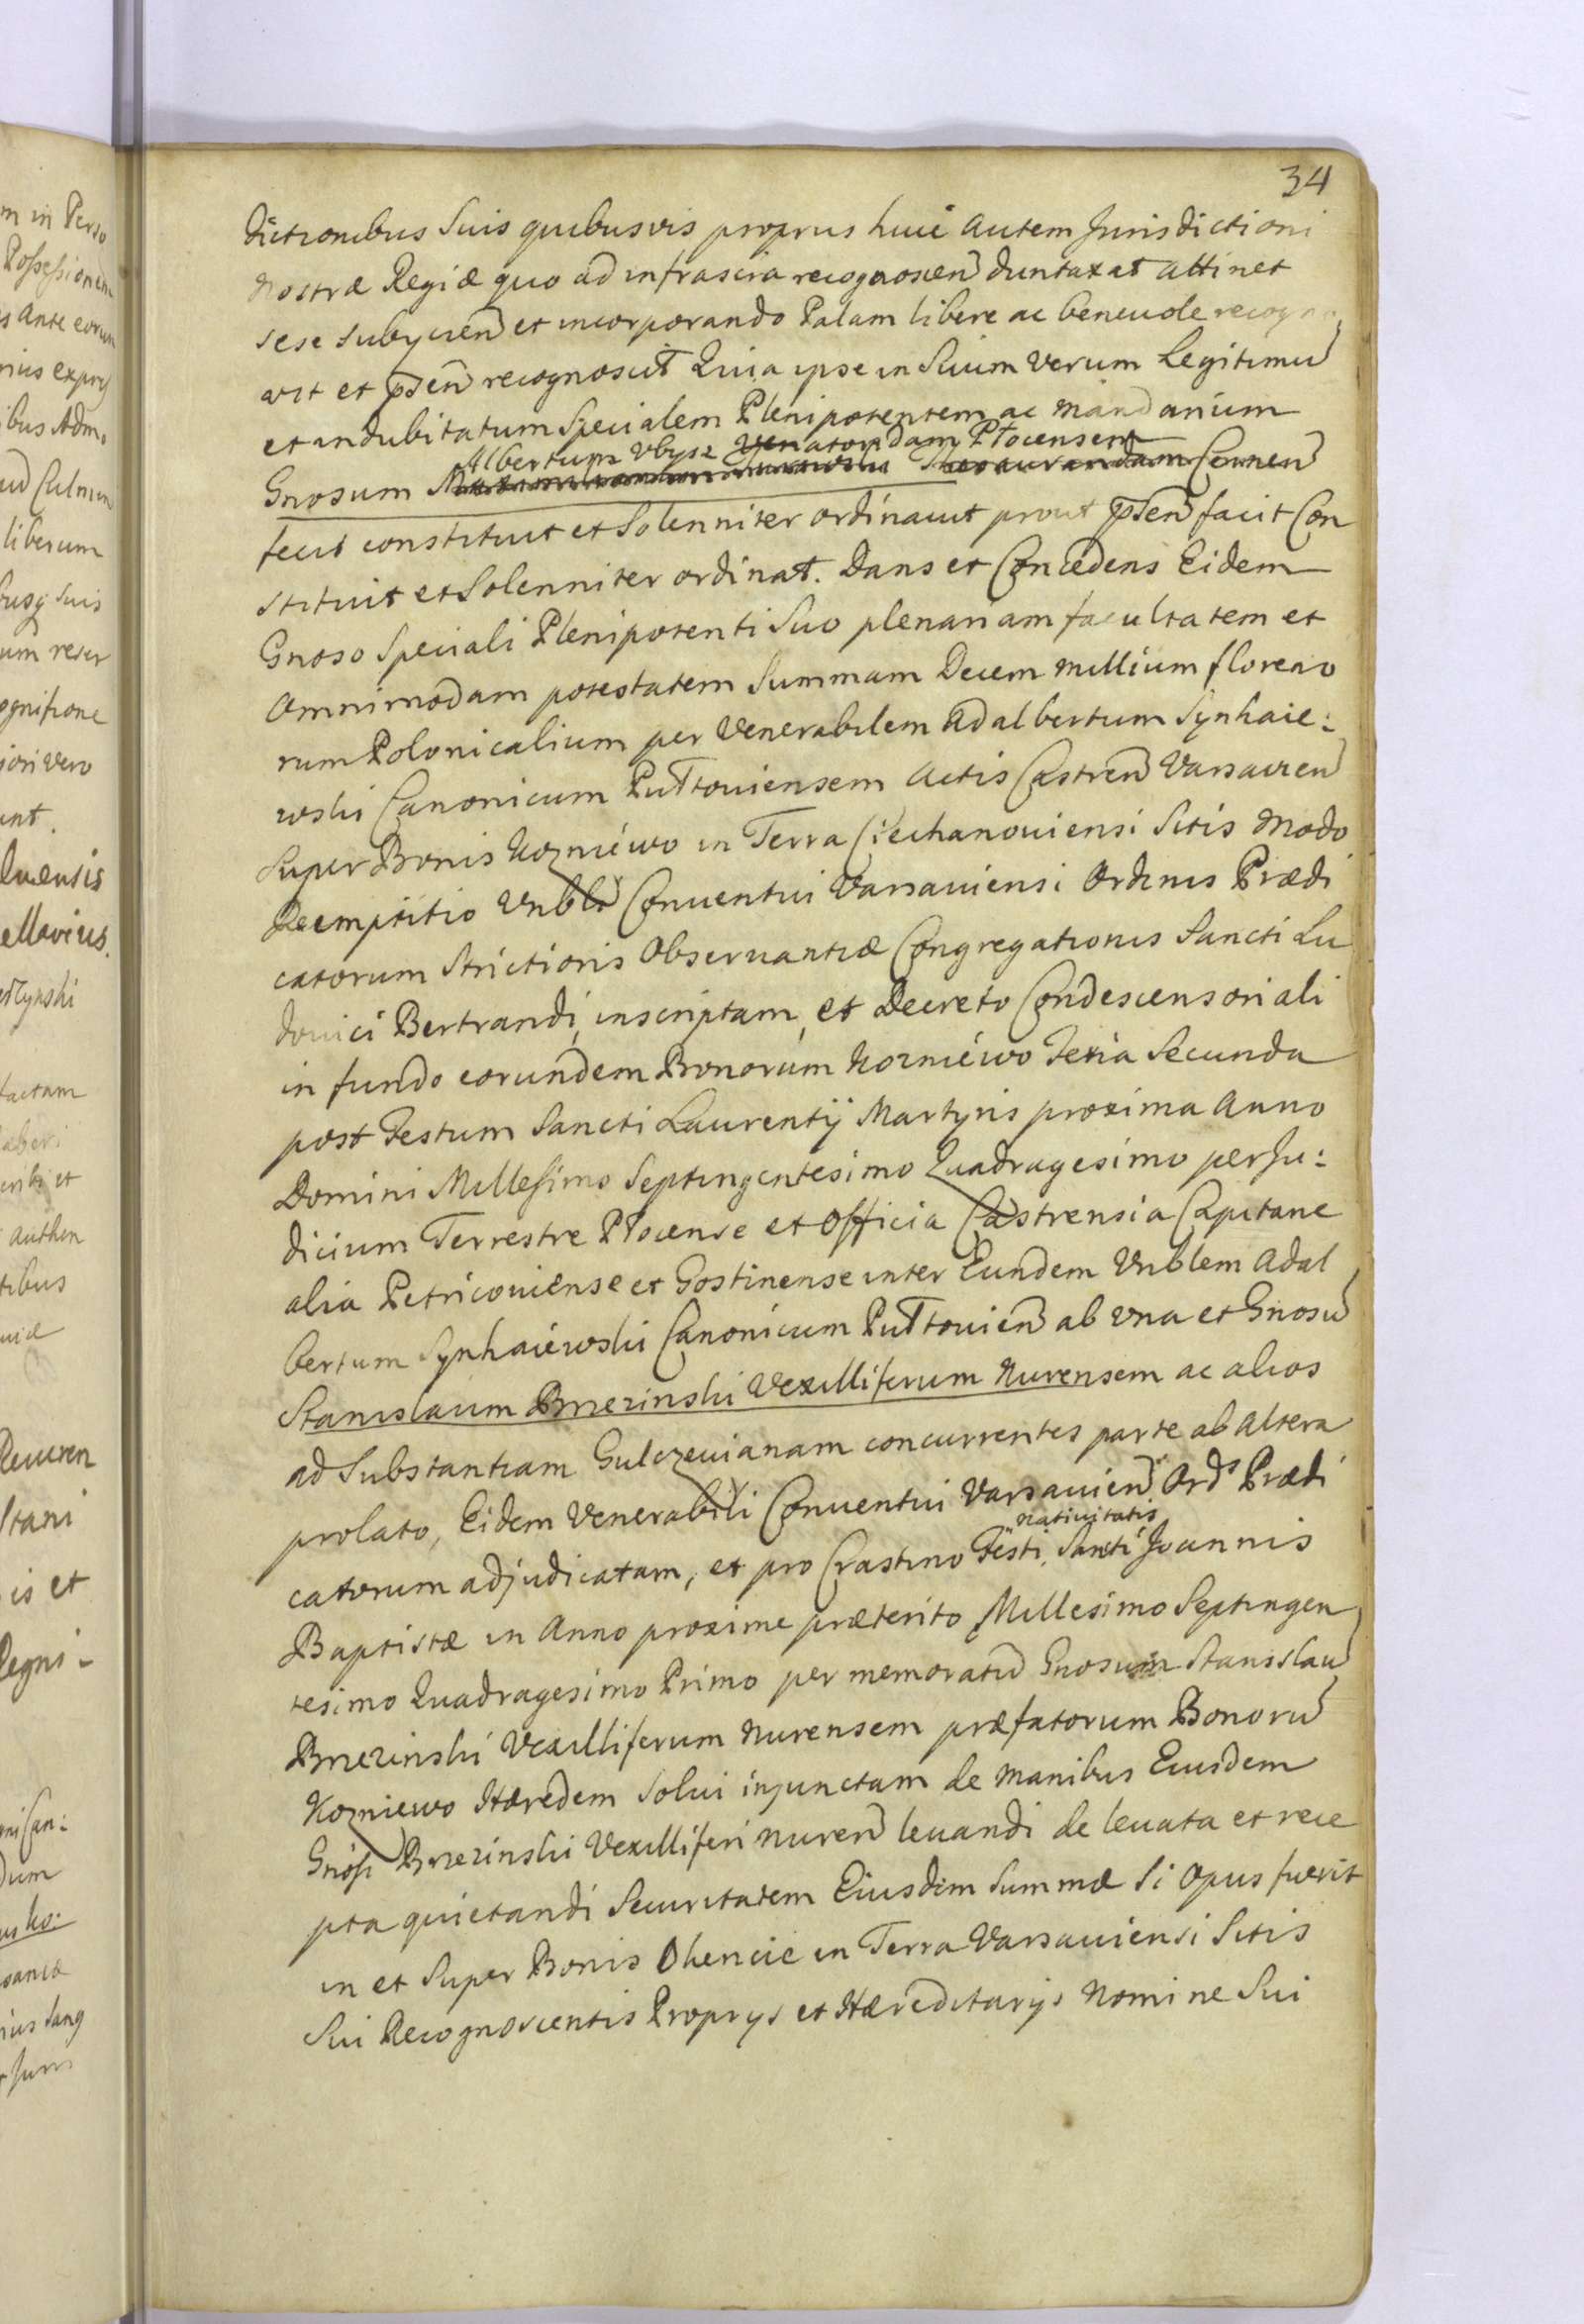 34
dictionibus Suis quibusvis proprys huic autem Jurisdictioni
Nostræ Regiæ quo ad infrascra recognoscen duntaxat attinet
sese subycien et incorporando Palam libere ac beneuole recogno
vit et psen recognoscit Quia ipse in Suum verum Legitimu
et indubitatum Specialem Plenipotentem ac Mandarium
Albertum Ubysz Venatoridam Płocensem
Gnosum
fecit constituit et Solenniter ordinauit prout psen facit Con
stituit et Solenniter ordinat. Dans et Concedens Eidem
Gnoso Speciali Plenipotenti Suo plenariam facultatem et
Omnimodam potestatem Summam Decem Millium floreno
rum Polonicalium per Venerabilem Adalbertum Synhaie:
wski Canonicum Pułtouiensem Actis Castren Varsauien
Super Bonis Kozniéwo in Terra Ciechanouiensi Sitis Modo
Reemptitio Vnbli Conuentui Varsauiensi Ordinis Prædi
catorum Strictioris Obseruantiæ Congregationis Sancti Lu
douici Bertrandi, inscriptam, et Decreto Condescensoriali
in fundo eorundem Bonorum Kozniéwo Feria Secunda
post Festum Sancti Laurentÿ Martyris proxima Anno
Domini Millesimo Septingentesimo Quadragesimo per Ju:
dicium Terrestre Płocense et Officia Castrensia Capitane
alia Petricouiense et Gostinense inter Eundem Vnblem Adal
bertum Synhaiéwski Canonicum Pułtouien ab una et Gnosu
Stanislaum Brzezinski Vexilliferum Nurensem ac alios
ad Substantiam Gulczeuianam concurrentes parte ab altera
prolato, Eidem Venerabili Conuentui Varsauien Ords Prædi
nativitatis
catorum adjudicatam, et pro Crastino Festi, Sancti Joannis
Baptistæ in Anno proxime præterito Millesimo Septingen
tesimo Quadragesimo Primo per memoratu Gnosum Stanislau
Brzezinski Vexilliferum Nurensem præfatorum Bonoru
Kozniewo Hæredem Solui injunctam de Manibus Eiusdem
Gnosi Brzezinski Vexilliferi Nuren leuandi de leuata et rece
pta quietandi Securitatem Eiusdem Summæ Si Opus fuerit
in et Super Bonis Okencie in Terra Varsauiensi Sitis
Sui Recognoscentis Proprys et Hæreditarys Nomine Sui